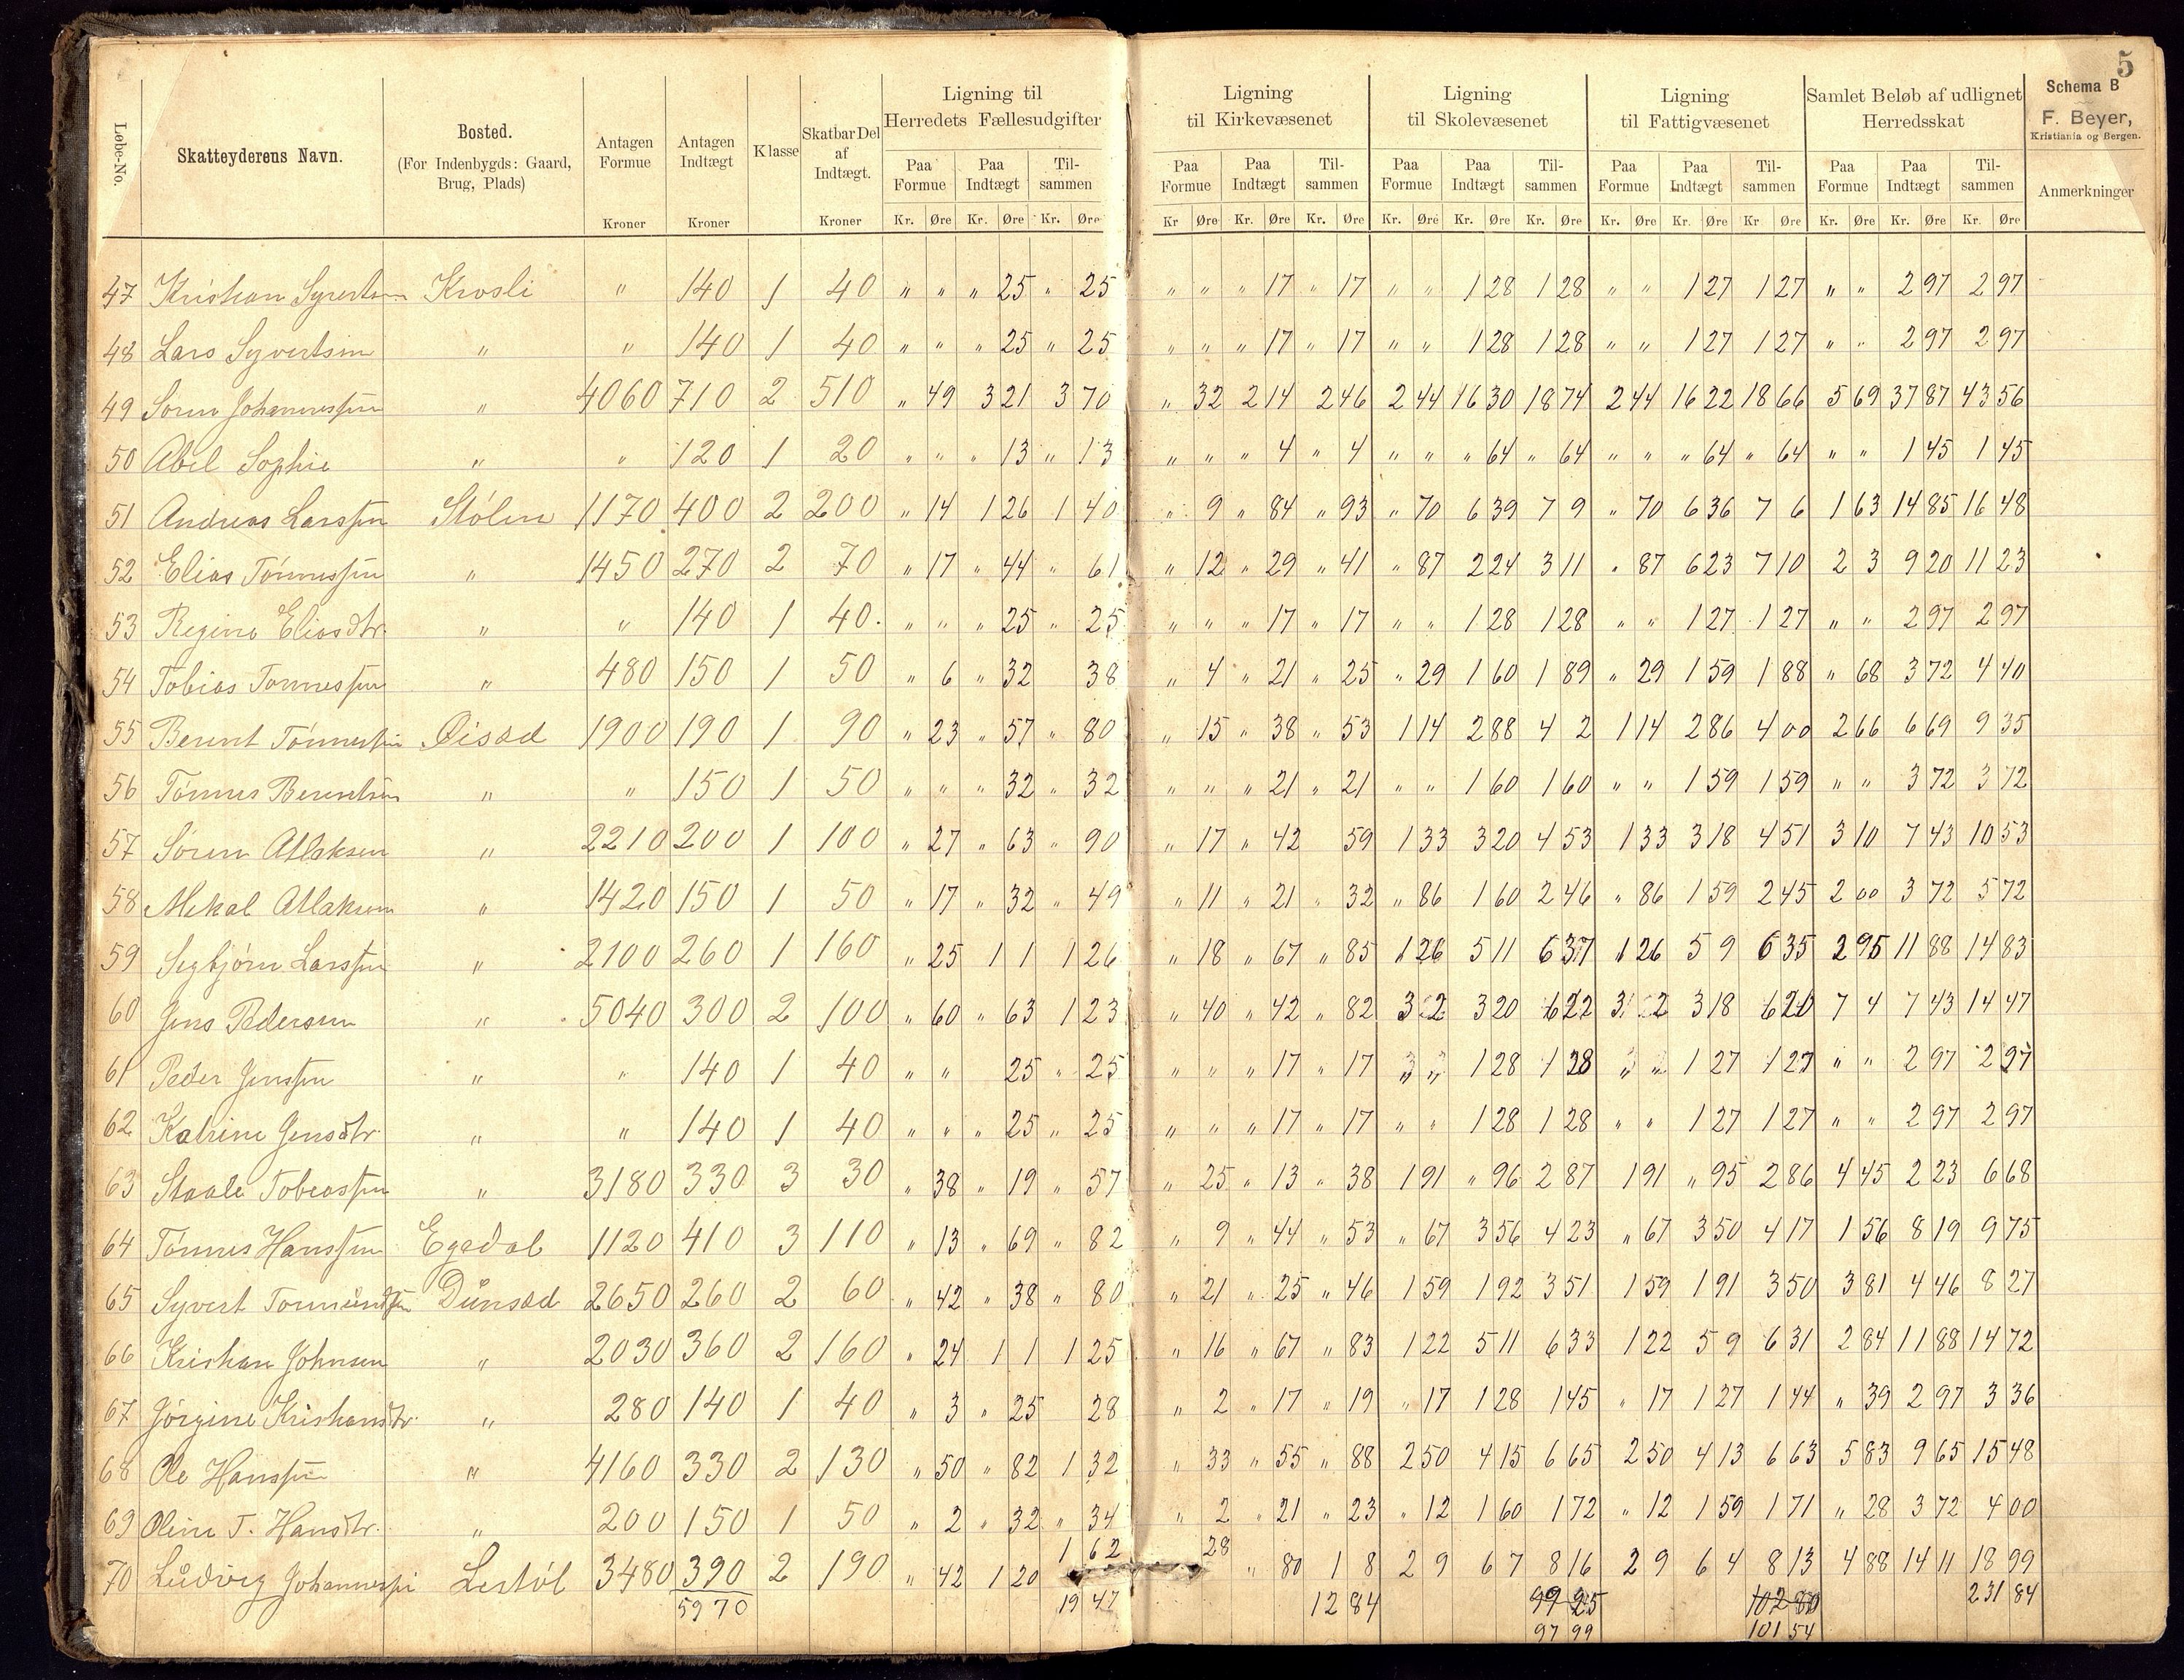 5
Schema B
F. Beyer,
Kristiania og Bergen.
Løbe-No. Skatteyderens Navn. Bosted. (For Indenbygds: Gaard, Brug, Plads) Antagen Formue Kroner Antagen Indtægt Kroner Klasse Skatbar Del af Indtægt. Kroner Ligning til Herredets Fællesudgifter Ligning til Kirkevæsenet Ligning til Skolevæsenet Ligning til Fattigvæsenet Samlet Beløb af udlignet Herredsskat Anmerkninger
Paa Formue Paa Indtægt Tilsammen Paa Formue Paa Indtægt Tilsammen Paa Formue Paa Indtægt Tilsammen Paa Formue Paa Indtægt Tilsammen Paa Formue Paa Indtægt Tilsammen
Kr. Øre Kr. Øre Kr. Øre Kr Øre Kr. Øre Kr. Øre Kr. Øre Kr. Øre Kr. Øre Kr. Øre Kr. Øre Kr Øre Kr. Øre Kr. Øre Kr. Øre
47 Kristian Syvertsen Krosli " 140 1 40 " " " 25 " 25 " " " 17 " 17 " " 1 28 1 28 " " 1 27 1 27 " " 2 97 2 97
48 Lars Syvertsen " " 140 1 40 " " " 25 " 25 " " " 17 " 17 " " 1 28 1 28 " " 1 27 1 27 " " 2 97 2 97
49 Søren Johannessen " 4060 710 2 510 " 49 3 21 3 70 " 32 2 14 2 46 2 44 16 30 18 74 2 44 16 22 18 66 5 69 37 87 43 56
50 Abel Sophie " " 120 1 20 " " " 13 " 13 " " " 4 " 4 " " " 64 " 64 " " " 64 " 64 " " 1 45 1 45
51 Andreas Larssen Stølen 1170 400 2 200 " 14 1 26 1 40 " 9 " 84 " 93 " 70 6 39 7 9 " 70 6 36 7 6 1 63 14 85 16 48
52 Elias Tønnessen " 1450 270 2 70 " 17 " 44 " 61 " 12 " 29 " 41 " 87 2 24 3 11 " 87 6 23 7 10 2 3 9 20 11 23
53 Regine Eliasdtr. " " 140 1 40 " " " 25 " 25 " " " 17 " 17 " " 1 28 1 28 " " 1 27 1 27 " " 2 97 2 97
54 Tobias Tønnessen " 480 150 1 50 " 6 " 32 38 " 4 " 21 " 25 " 29 1 60 1 89 " 29 1 59 1 88 " 68 3 72 4 40
55 Berent Tønnessen Øisæd 1900 190 1 90 " 23 " 57 " 80 " 15 " 38 " 53 1 14 2 88 4 2 1 14 2 86 4 00 2 66 6 69 9 35
56 Tønnes Berentsen " " 150 1 50 " " " 32 " 32 " " " 21 " 21 " " 1 60 1 60 " " 1 59 1 59 " " 3 72 3 72
57 Søren Atlaksen " 2210 200 1 100 " 27 " 63 " 90 " 17 " 42 59 1 33 3 20 4 53 1 33 3 18 4 51 3 10 7 43 10 53
58 Mekal Atlaksen " 1420 150 1 50 " 17 " 32 " 49 " 11 " 21 " 32 " 86 1 60 2 46 " 86 1 59 2 45 2 00 3 72 5 72
59 Segbjørn Larssen " 2100 260 1 160 " 25 1 1 1 26 " 18 " 67 " 85 1 26 5 11 6 37 1 26 5 9 6 35 2 95 11 88 14 83
60 Jens Pedersen " 5040 300 2 100 " 60 " 63 1 23 " 40 " 42 " 82 3 2 3 20 6 22 3 2 3 18 6 20 7 4 7 43 14 47
61 Peder Jenssen " " 140 1 40 " " 25 " 25 " " " 17 " 17 " " 1 28 1 28 " " 1 27 1 27 " " 2 97 2 97
62 Katrine Jensdtr. " " 140 1 40 " " " 25 " 25 " " " 17 " 17 " " 1 28 1 28 " " 1 27 1 27 " " 2 97 2 97
63 Staale Tobiassen " 3180 330 3 30 " 38 " 19 " 57 " 25 " 13 " 38 1 91 " 96 2 87 1 91 " 95 2 86 4 45 2 23 6 68
64 Tønnes Hanssen Egedal 1120 410 3 110 " 13 " 69 " 82 " 9 " 44 " 53 " 67 3 56 4 23 " 67 3 50 4 17 1 56 8 19 9 75
65 Syvert Tormundsen Dunsæd 2650 260 2 60 " 42 " 38 " 80 " 21 " 25 " 46 1 59 1 92 3 51 1 59 1 91 3 50 3 81 4 46 8 27
66 Kristian Johnsen " 2030 360 2 160 " 24 1 1 1 25 " 16 " 67 " 83 1 22 5 11 6 33 1 22 5 9 6 31 2 84 11 88 14 72
67 Jørgine Kristiansdtr. " 280 140 1 40 " 3 " 25 28 " 2 " 17 " 19 " 17 1 28 1 45 " 17 1 27 1 44 " 39 2 97 3 36
68 Ole Hanssen " 4160 330 2 130 " 50 " 82 1 32 " 33 " 55 " 88 2 50 4 15 6 65 2 50 4 13 6 63 5 83 9 65 15 48
69 Oline T. Hansdtr. " 200 150 1 50 " 2 " 32 " 34 " 2 " 21 " 23 " 12 1 60 1 72 " 12 1 59 1 71 " 28 3 72 4 00
70 Ludvig Johannessen Lestøl 3480 390 2 190 " 42 1 20 1 62 28 " 80 1 8 2 9 6 7 8 16 2 9 6 4 8 13 4 88 14 11 18 99
5970 19 47 12 84 99 25 102 80 231 84
97 99 101 54